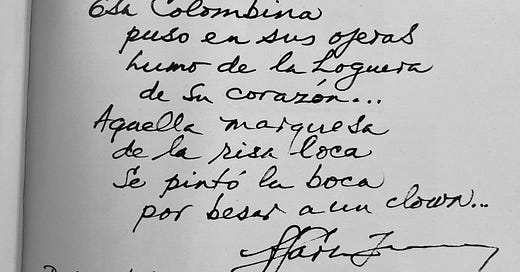 Esa Colombina
puso en sus ojeras
humo de la hoguera
de su corazón...
Aquella marquesa
de la risa loca
se pintó la boca
por besar a un clown...